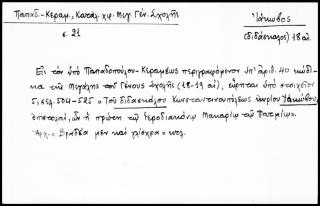 Παπαδ.-Κεραμ., Κατάλ. χφ. Μεγ. Γέν. Σχολῆς
σ. 21
Ἰάκωβος
(διδάσκαλος) 18 αἰ.
Εἰς τὸν ὑπὸ Παπαδοπούλου-Κεραμέως περιγραφόμενον ὑπ' ἀριθ. 40 κώδι-
κα τῆς Μεγάλης τοῦ Γένους Σχολῆς (18-19 αἰ), εὕρηται ὑπὸ στοιχεῖον
5, σελ. 504-525 "Τοῦ διδασκάλου Κωνσταντινουπόλεως κυρίου Ἰακώβου,
ἐπιστολαί, ὧν ἡ πρώτη τῷ ἱεροδιακόνῳ Μακαρίῳ τῷ Πατμίῳ".
Ἀρχ.= Βραδέα μὲν καὶ = κτλ.